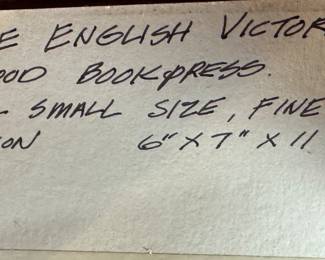 E ENGLISH VICTOR
OOD BOOKPRESS.
- SMALL SIZE, FINE
ON 6" X 7" X 11